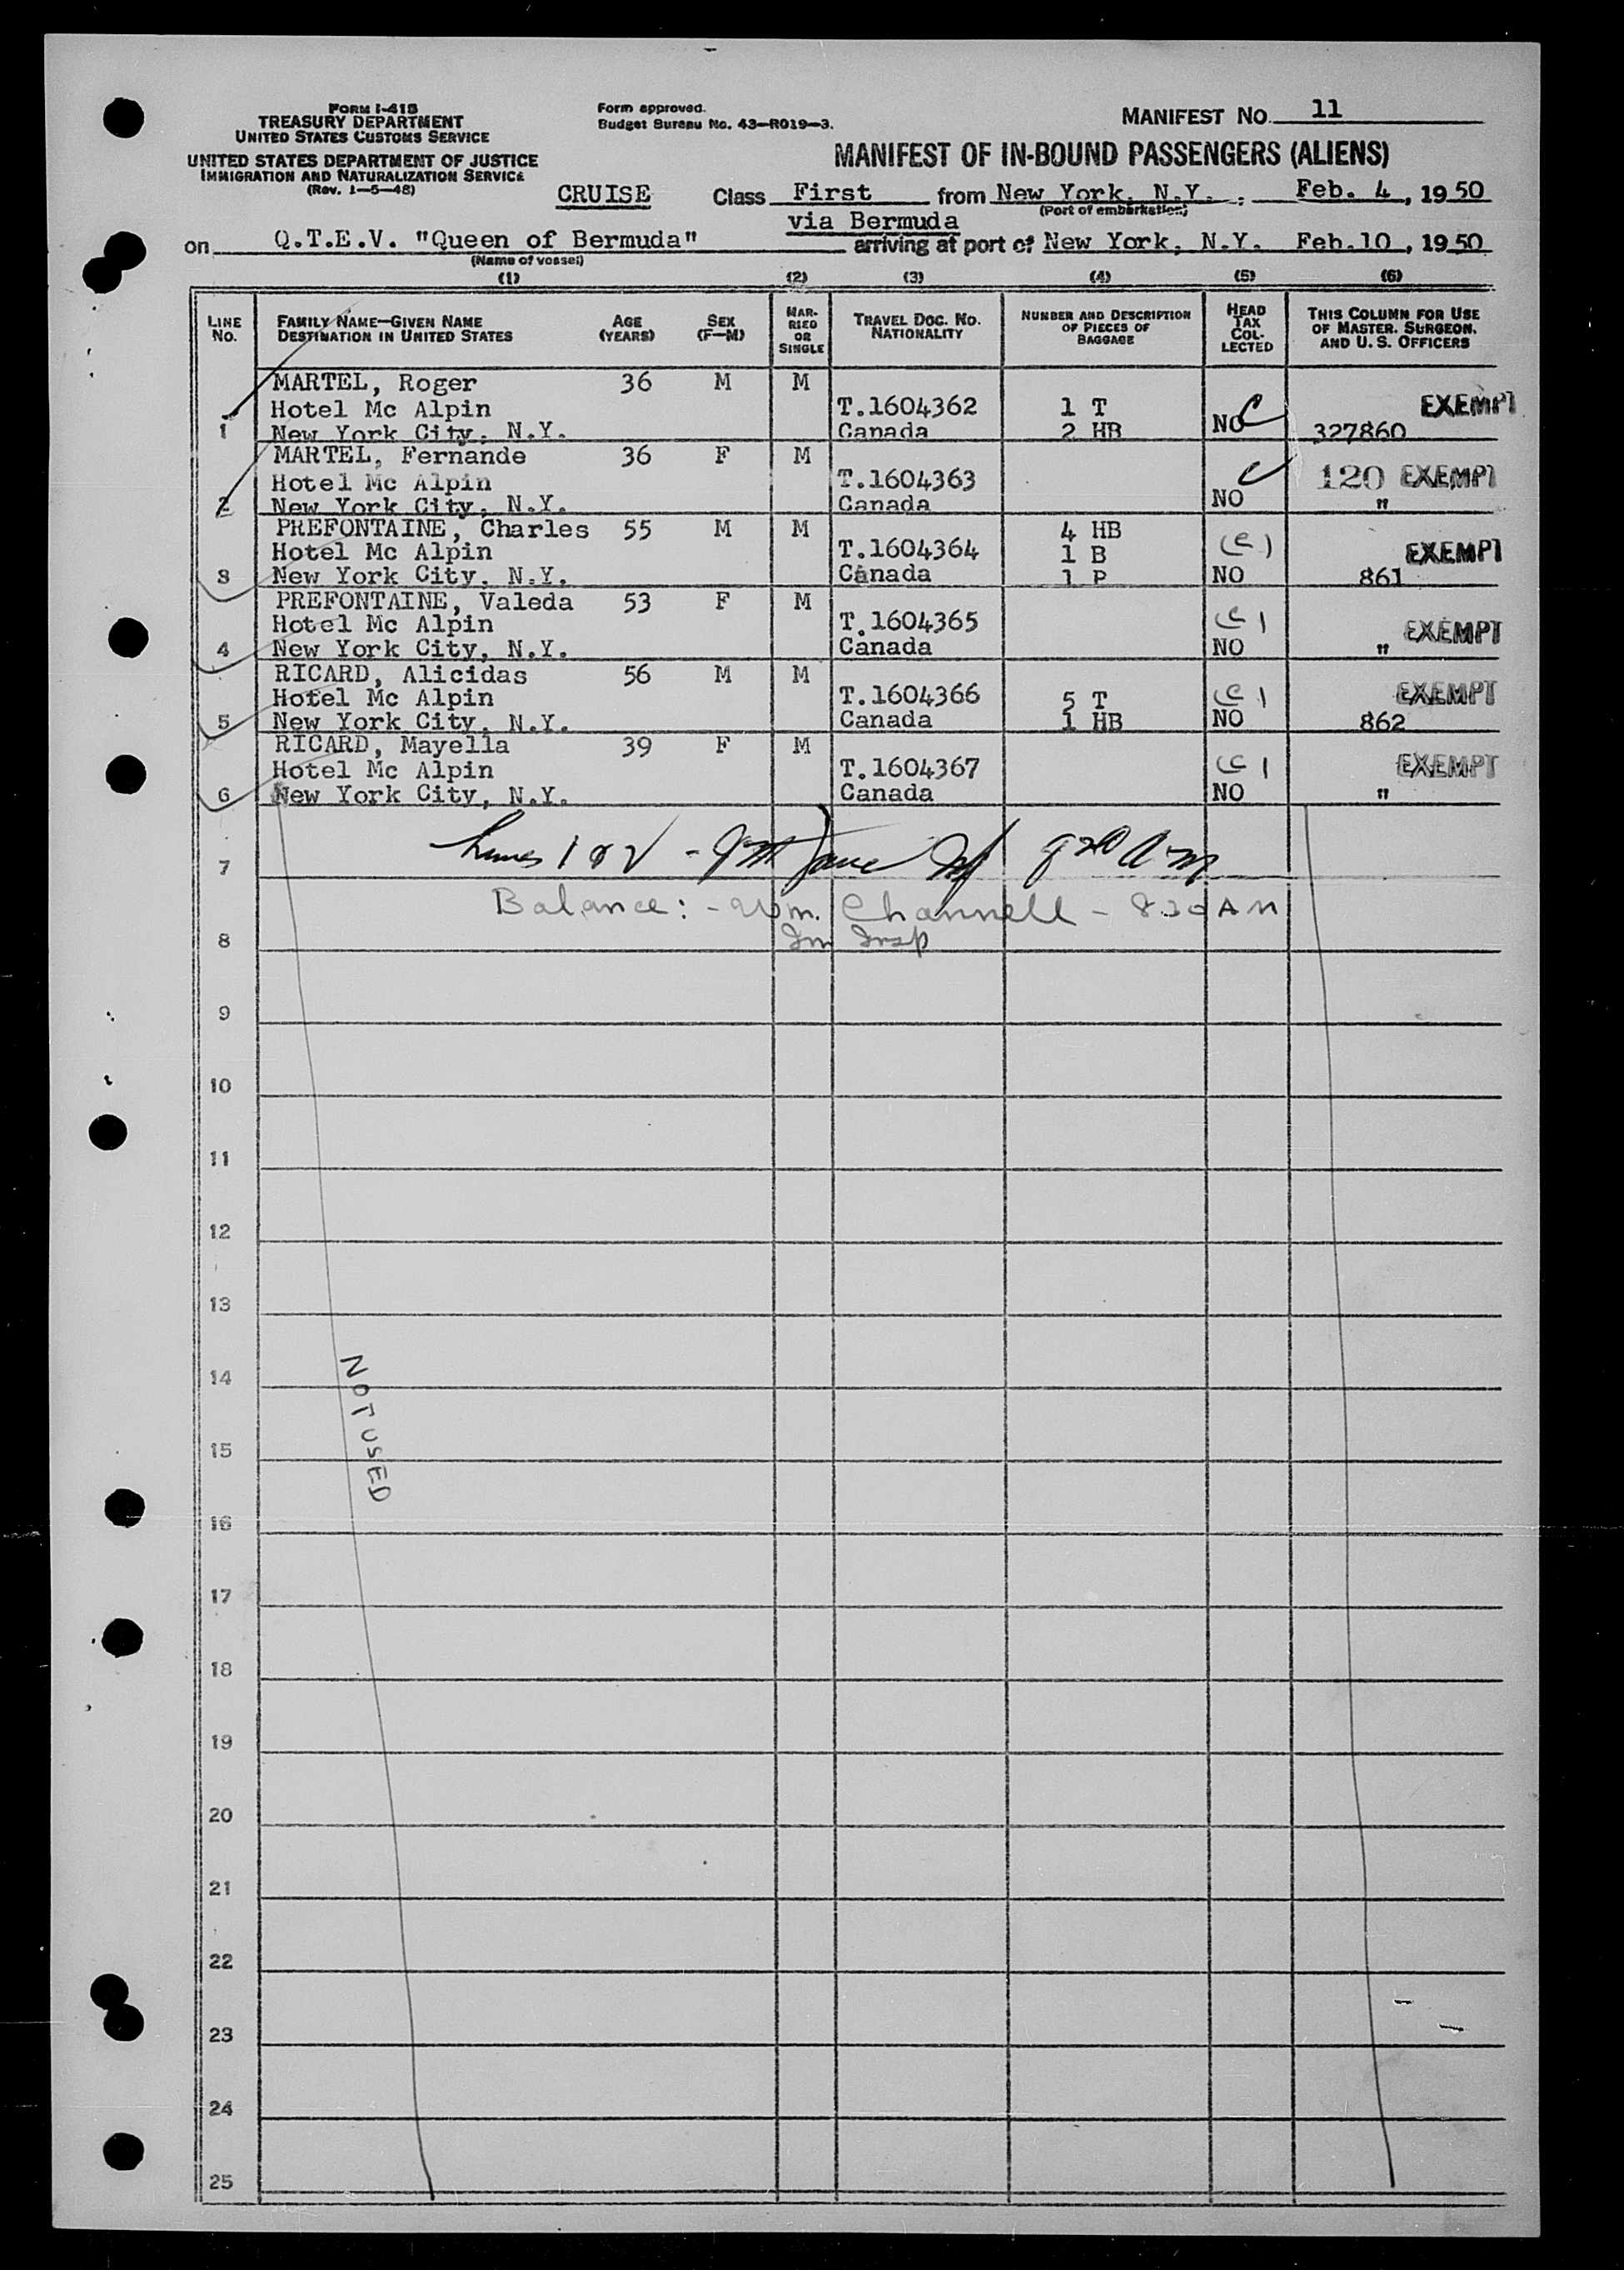 FORM I-418
TREASURY DEPARTMENT
UNITED STATES CUSTOMS SERVICE
UNITED STATES DEPARTMENT OF JUSTICE
IMMIGRATION AND NATURALIZATION SERVICE
(Rev. 1-5-48)
Form approved.
Budget Bureau No. 43-R019-3.
MANIFEST NO. 11
MANIFEST OF IN-BOUND PASSENGERS (ALIENS)
CRUISE Class First from New York, N.Y. , Feb. 4, 1950
(Port of embarkation)
via Bermuda
on Q.T.E.V. "Queen of Bermuda" arriving at port of New York, N.Y. Feb.10, 1950
(Name of vessel)
(1) (2) (3) (4) (5) (6)
LINE NO.
FAMILY NAME—GIVEN NAME
DESTINATION IN UNITED STATES
AGE (YEARS)
SEX (F—M)
MARRIED OR SINGLE
TRAVEL DOC. NO. NATIONALITY
NUMBER AND DESCRIPTION OF PIECES OF BAGGAGE
HEAD TAX COLLECTED
THIS COLUMN FOR USE OF MASTER, SURGEON, AND U. S. OFFICERS
MARTEL, Roger 36 M M
Hotel Mc Alpin T.1604362 1 T C EXEMPT
1 New York City, N.Y. Canada 2 HB NO 327860
MARTEL, Fernande 36 F M
Hotel Mc Alpin T.1604363 C 120 EXEMPT
2 New York City, N.Y. Canada NO "
PREFONTAINE, Charles 55 M M 4 HB
Hotel Mc Alpin T.1604364 1 B (C) EXEMPT
3 New York City, N.Y. Canada 1 P NO 861
PREFONTAINE, Valeda 53 F M
Hotel Mc Alpin T.1604365 (C) EXEMPT
4 New York City, N.Y. Canada NO "
RICARD, Alicidas 56 M M
Hotel Mc Alpin T.1604366 5 T (C) EXEMPT
5 New York City, N.Y. Canada 1 HB NO 862
RICARD, Mayella 39 F M
Hotel Mc Alpin T.1604367 (C) EXEMPT
6 New York City, N.Y. Canada NO "
Lines 1 & 2 -
7
Balance: - Wm. Channell - 820 AM
8 Im Insp
9
10
11
12
13
14
NOT USED
15
16
17
18
19
20
21
22
23
24
25